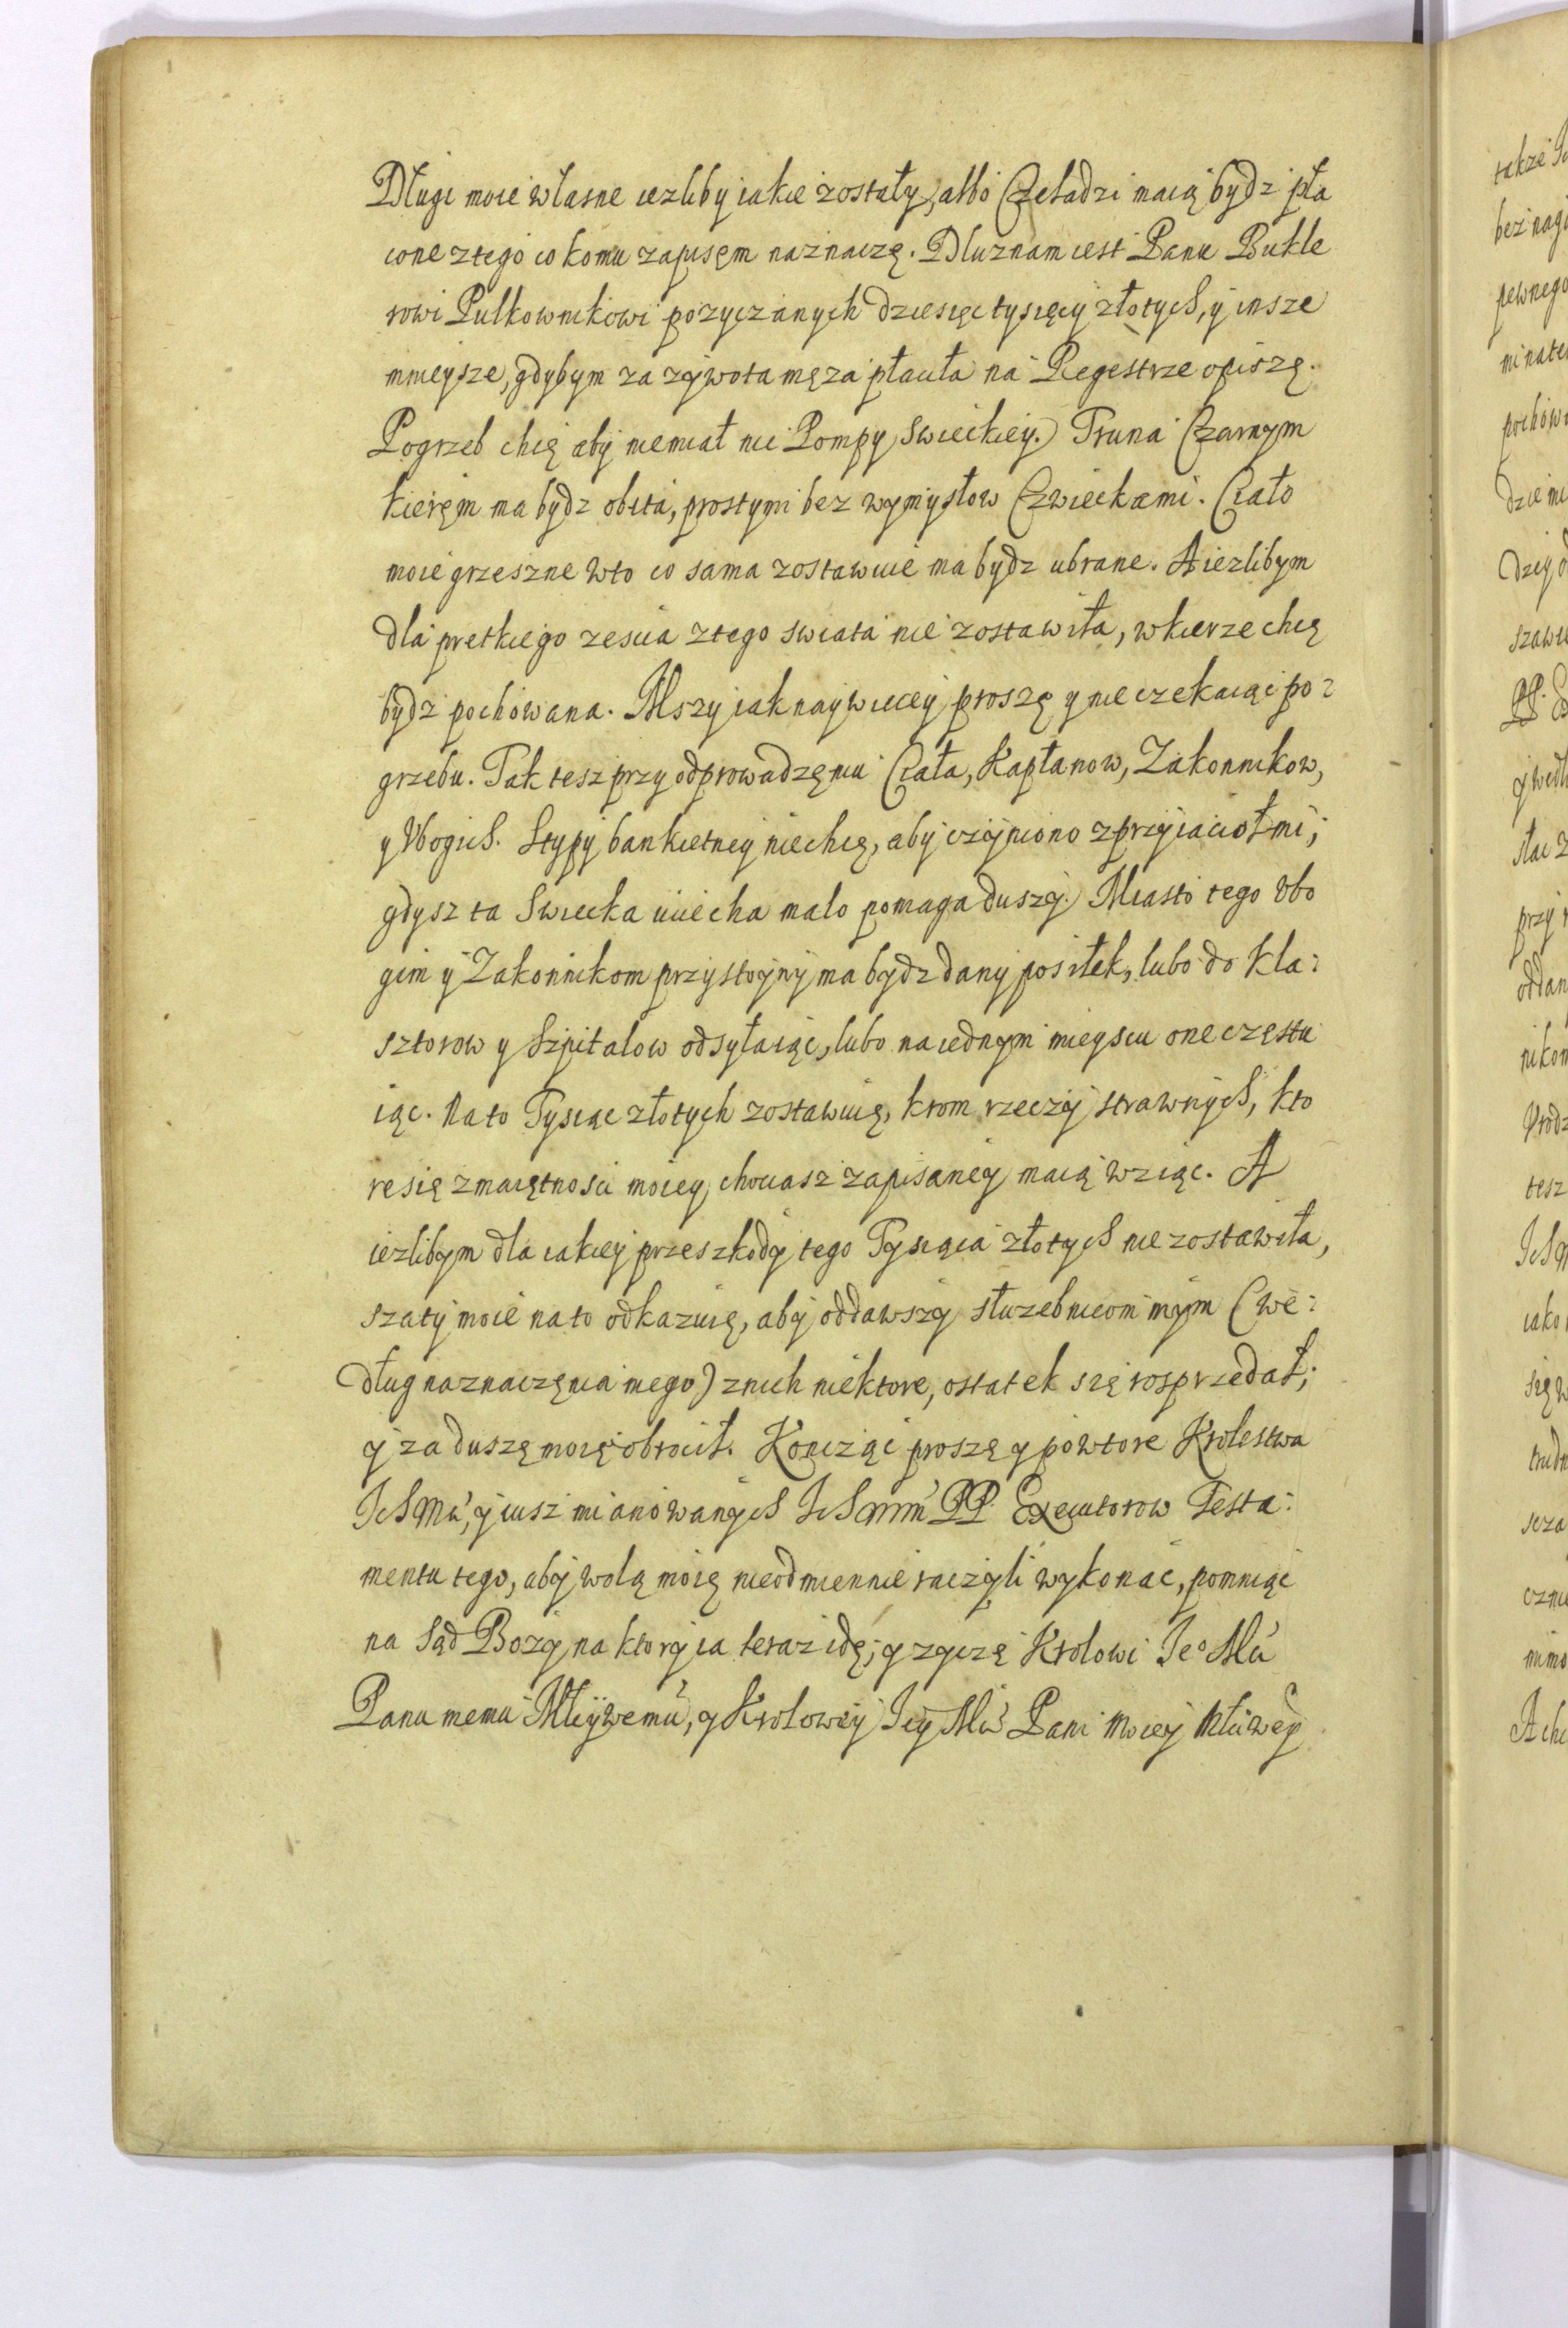 Długi moie własne iezliby iakie zostały, albo Czeladzi maią bydz pła
cone z tego co komu zapisęm naznaczę. Dluznam iest Panu Butle
rowi Pulkownikowi pozyczanych dziesięc tysięcy złotych, y insze
mnieysze, gdybym za zywota męza płaciła na Regestrze opiszę.
Pogrzeb chcę aby niemiał nic Pompy Swieckiey. Truna Czarnym
kieręm ma bydz obita, prostymi bez wymysłow Czwieckami. Ciało
moie grzeszne w to co sama zostawuie ma bydz ubrane. A iezlibym
dla pretkiego zescia z tego swiata nie zostawiła, w kierze chcę
bydz pochowana. Mszy iak naywiecey proszę y nie czekaiąc po:
grzebu. Tak tesz przy odprowadzęniu Ciała, Kapłanow, Zakonnikow,
y Vbogich. Stypy bankietney niechcę, aby czyniono z przyiaciołmi;
gdysz ta Swiecka uciecha malo pomaga duszy. Miasto tego Vbo
gim y Zakonnikom przystoyny ma bydz dany posiłek, lubo do Kla:
sztorow y Szpitalow odsyłaiąc, lubo na iednym mieyscu one częstu
iąc. Na to Tysiąc złotych zostawuię, krom rzeczy strawnych, kto
re się z maiętnosci moiey, chociasz zapisaney maią wziąc. A
iezlibym dla iakiey przeszkody tego Tysiąca złotych nie zostawiła,
szaty moie na to odkazuię, aby oddawszy słuzebnicom mym (we:
dług naznaczęnia mego) z nich niektore, ostatek się rosprzedał;
y za duszę moię obrocił. Koncząc proszę y powtore Krolestwa
Ich Mci, y iusz mianowanych Ich Mm PP. Executorow Testa:
mentu tego, aby wolą moię nieodmiennie raczyli wykonac, pomniąc
na Sąd Bozy na ktory ia teraz idę; y zyczę Krolowi Jeo Mci
Panu memu Młcywemu, y Krolowey Jey Mci Pani Moiey Młciwey